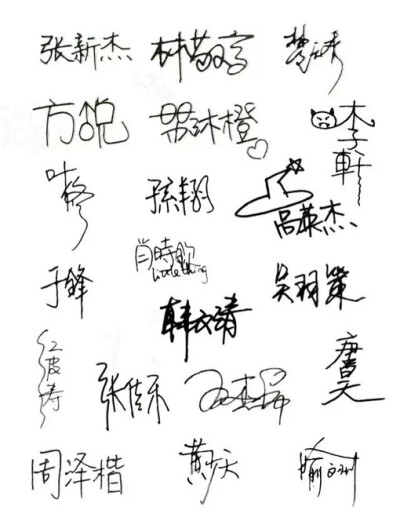 张新杰 林敬言 楚云秀
方锐 苏沐橙 李轩
叶修 孫翔 吕英杰
肖時欽
little thing
于锋 吴羽策
韩文清
江波涛 张佳乐 王杰希 唐昊
周泽楷 黄少天 喻文州